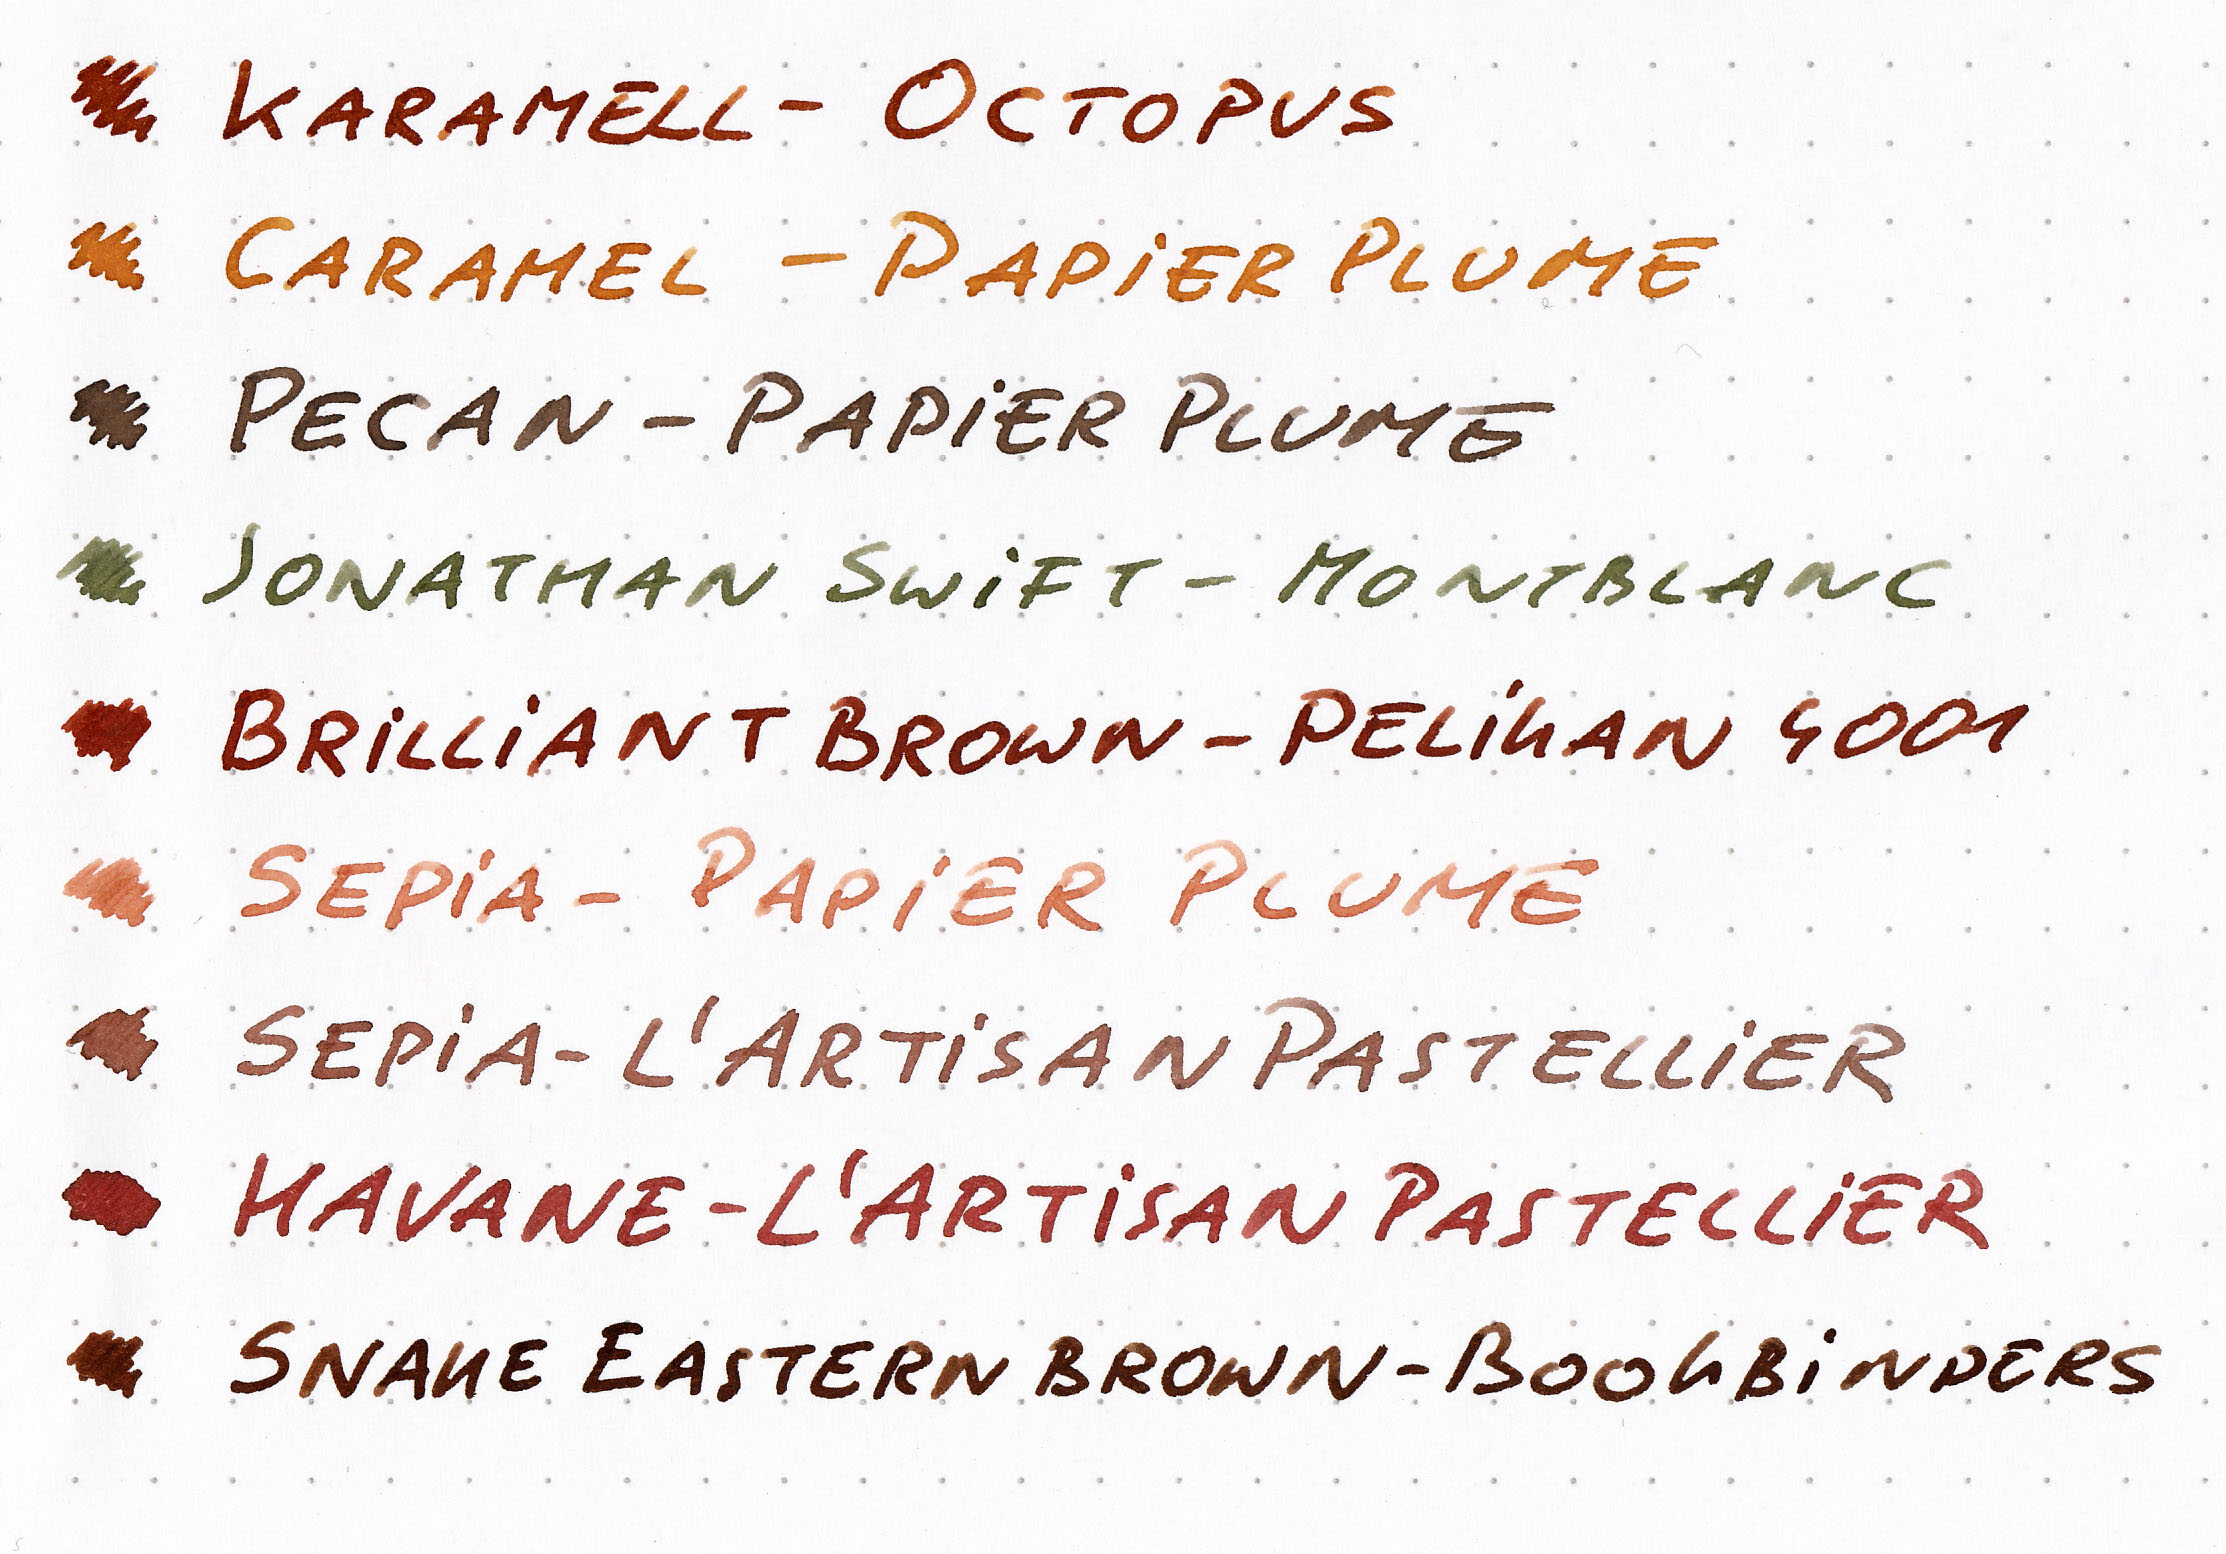 KARAMELL - OCTOPUS
CARAMEL - PAPiER PLUME
PECAN - PAPiER PLUME
JONATHAN SWiFT - MONTBLANC
BRiLLiANT BROWN - PELiKAN 4001
SEPiA - PAPiER PLUME
SEPiA - L'ARTiSAN PASTELLiER
HAVANE - L'ARTiSAN PASTELLiER
SNAKE EASTERN BROWN - BOOKBiNDERS